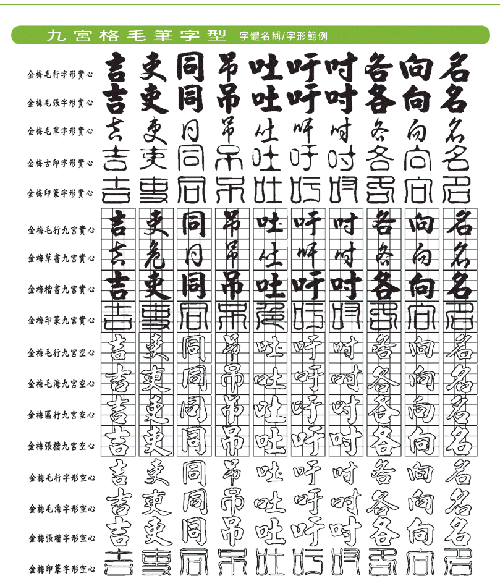 九宮格毛筆字型 字體名稱/字形範例
金梅毛行字形實心 吉吏同吊吐吁吋各向名
金梅毛張字形實心 吉吏同吊吐吁吋各向名
金梅毛草字形實心 吉吏同吊吐吁吋各向名
金梅古印字形實心 吉吏同吊吐吁吋各向名
金梅印篆字形實心 吉吏同吊吐吁吋各向名
金梅毛行九宮實心 吉吏同吊吐吁吋各向名
金梅草書九宮實心 吉危同吊吐吁吋各向名
金梅楷書九宮實心 吉吏同吊吐吁吋各向名
金梅印篆九宮實心 吉吏同吊色吁吋各向名
金梅毛行九宮空心 吉吏同吊吐吁吋各向名
金梅毛海九宮空心 吉吏同吊吐吁吋各向名
金梅區行九宮空心 吉吏同吊吐吁吋各向名
金梅張楷九宮空心 吉吏同吊吐吁吋各向名
金梅毛行字形空心 吉吏同吊吐吁吋各向名
金梅毛海字形空心 吉吏同吊吐吁吋各向名
金梅張楷字形空心 吉吏同吊吐吁吋各向名
金梅印篆字形空心 吉吏同吊吐吁吋各向名